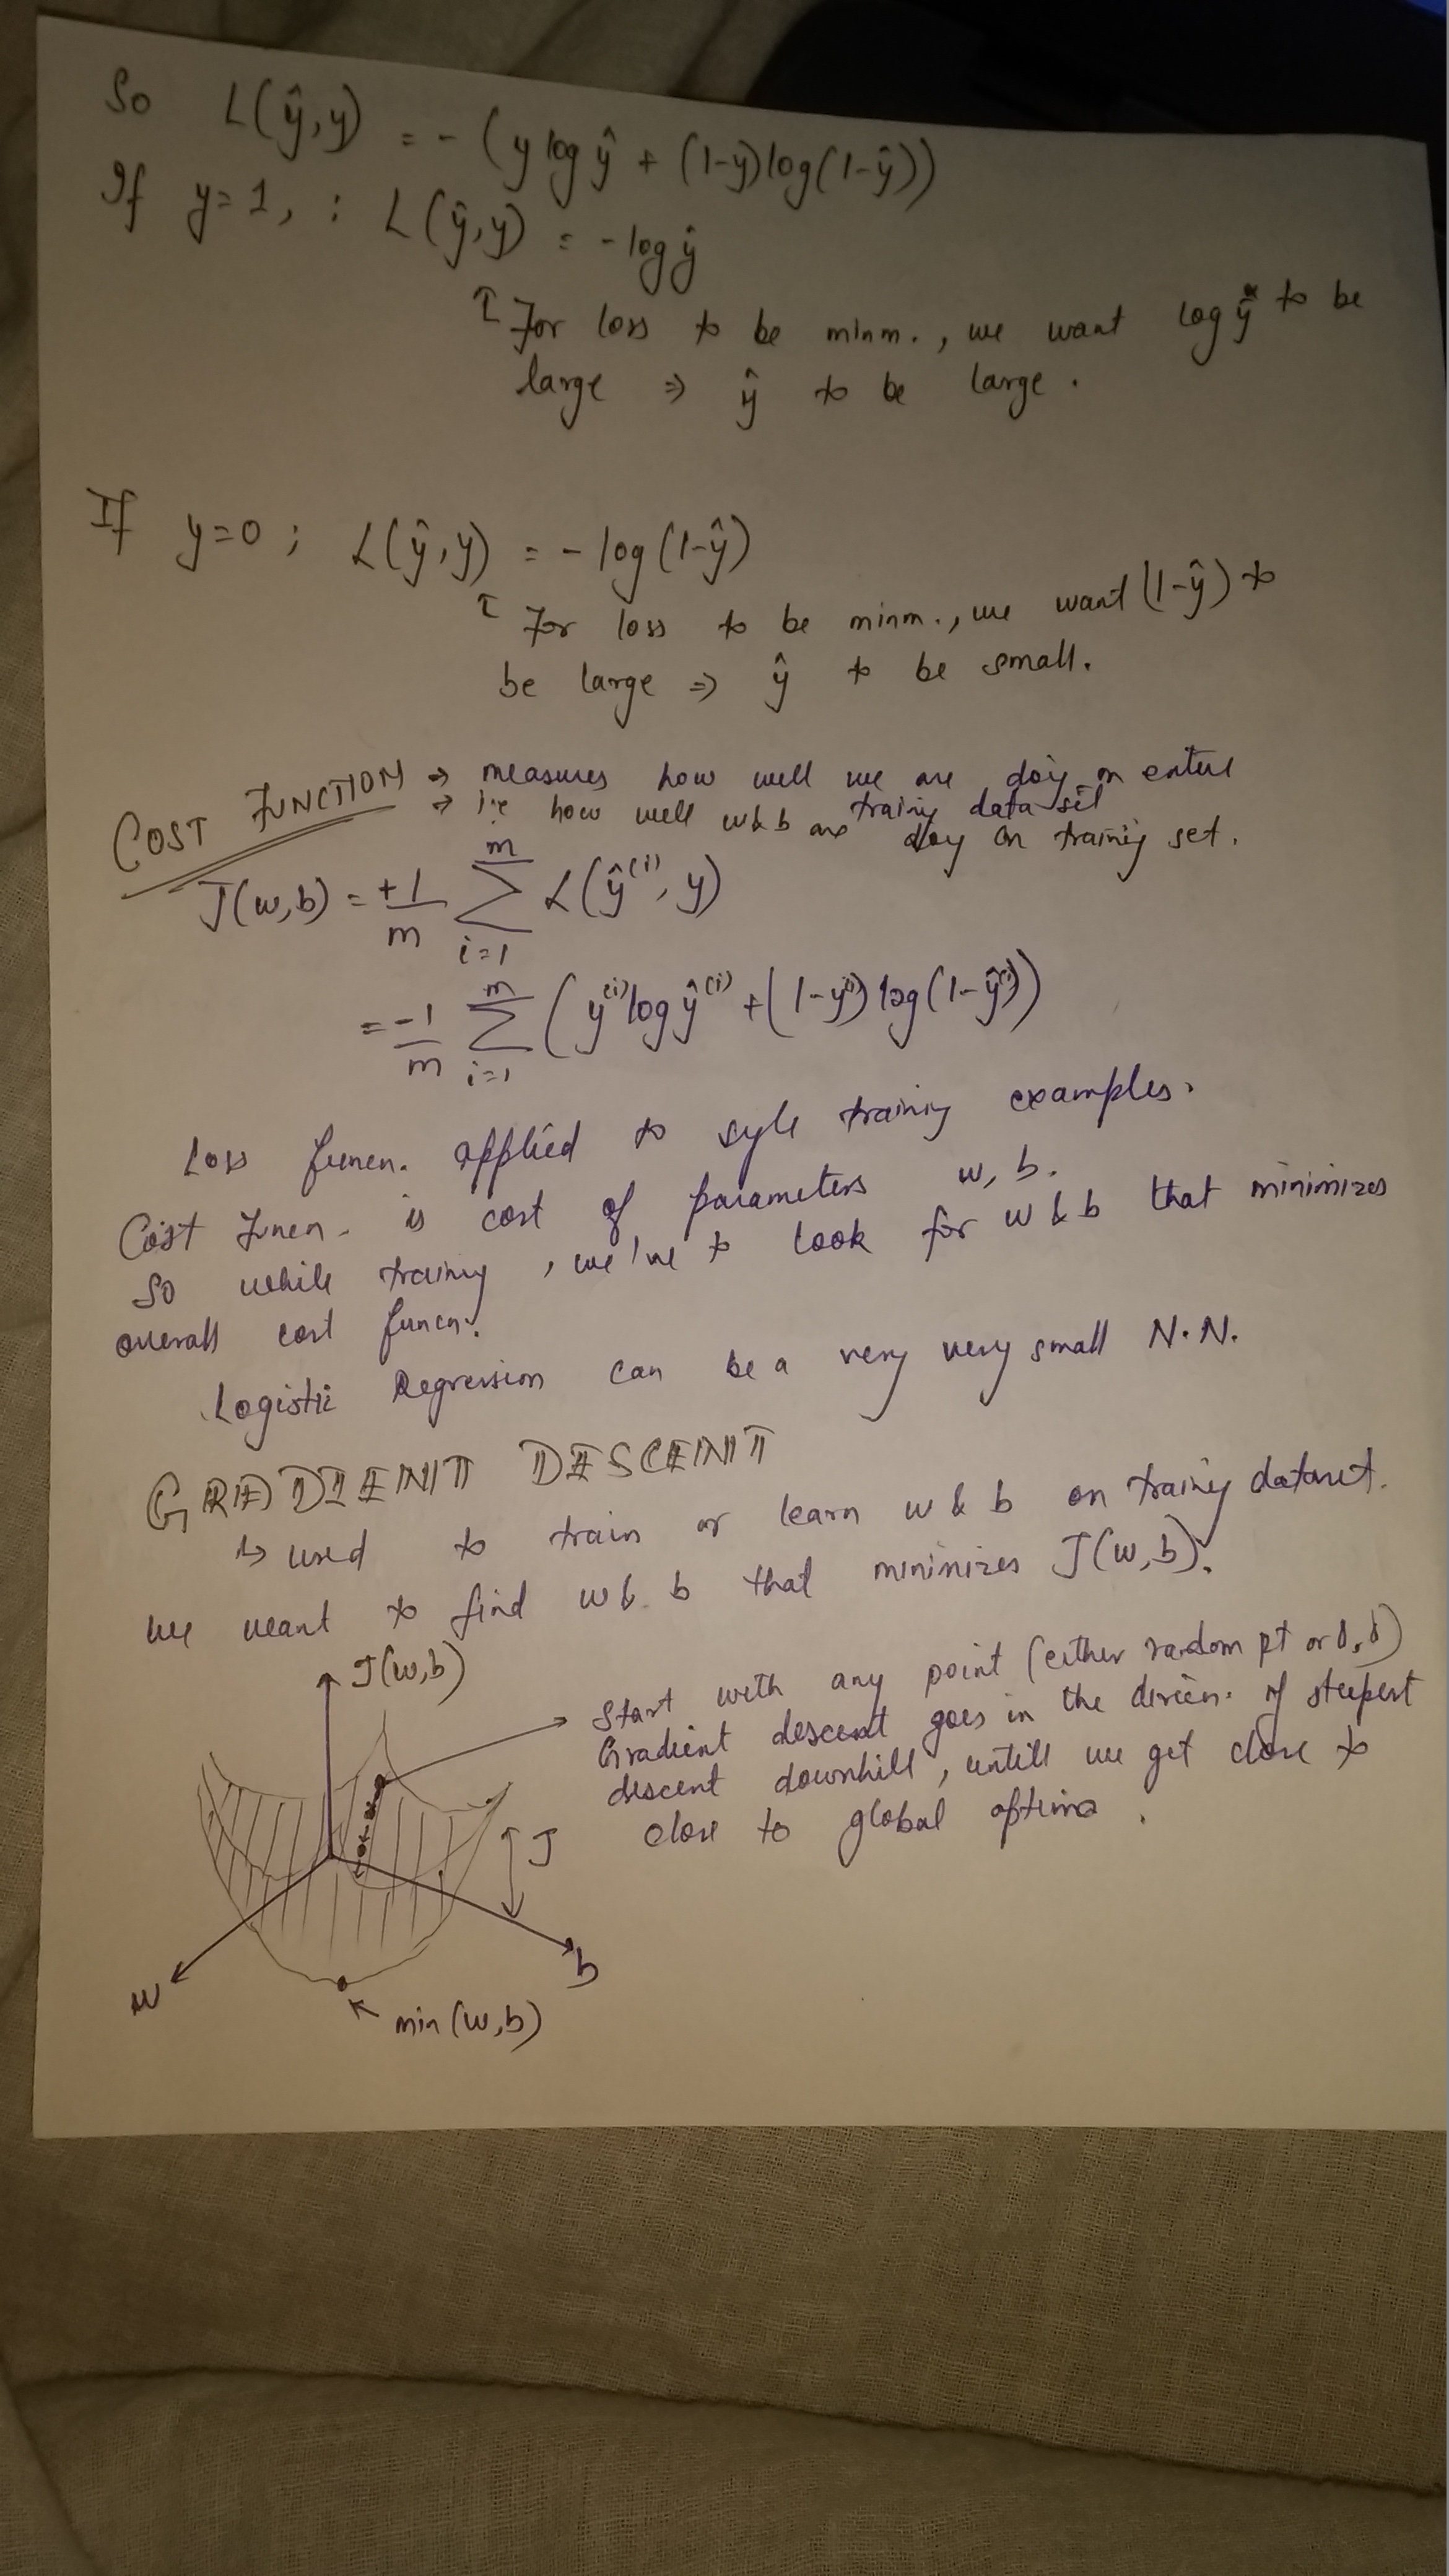 So L(ŷ,y) = - (y log ŷ + (1-y)log(1-ŷ))
If y=1, : L(ŷ,y) = -log ŷ
For loss to be minm., we want log ŷ to be
large ⇒ ŷ to be large.
If y=0 ; L(ŷ,y) = - log(1-ŷ)
For loss to be minm., we want (1-ŷ) to
be large ⇒ ŷ to be small.
COST FUNCTION → measures how well we are doing on entire
training data set
→ i.e how well w & b are doing on training set.
J(w,b) = +1/m Σ_{i=1}^{m} L(ŷ^(i), y)
= -1/m Σ_{i=1}^{m} (y^(i) log ŷ^(i) + (1-y^(i)) log(1-ŷ^(i)))
Loss funcn. applied to single training examples.
Cost funcn. is cost of parameters w, b.
So while training, we've to look for w & b that minimizes
overall cost funcn.
Logistic Regression can be a very very small N.N.
GRADIENT DESCENT
↳ used to train or learn w & b on training dataset.
we want to find w & b that minimizes J(w,b).
J(w,b)
Start with any point (either random pt or 0,0)
Gradient descent goes in the direcn. of steepest
descent downhill, untill we get close to
close to global optima.
J
w
b
min(w,b)